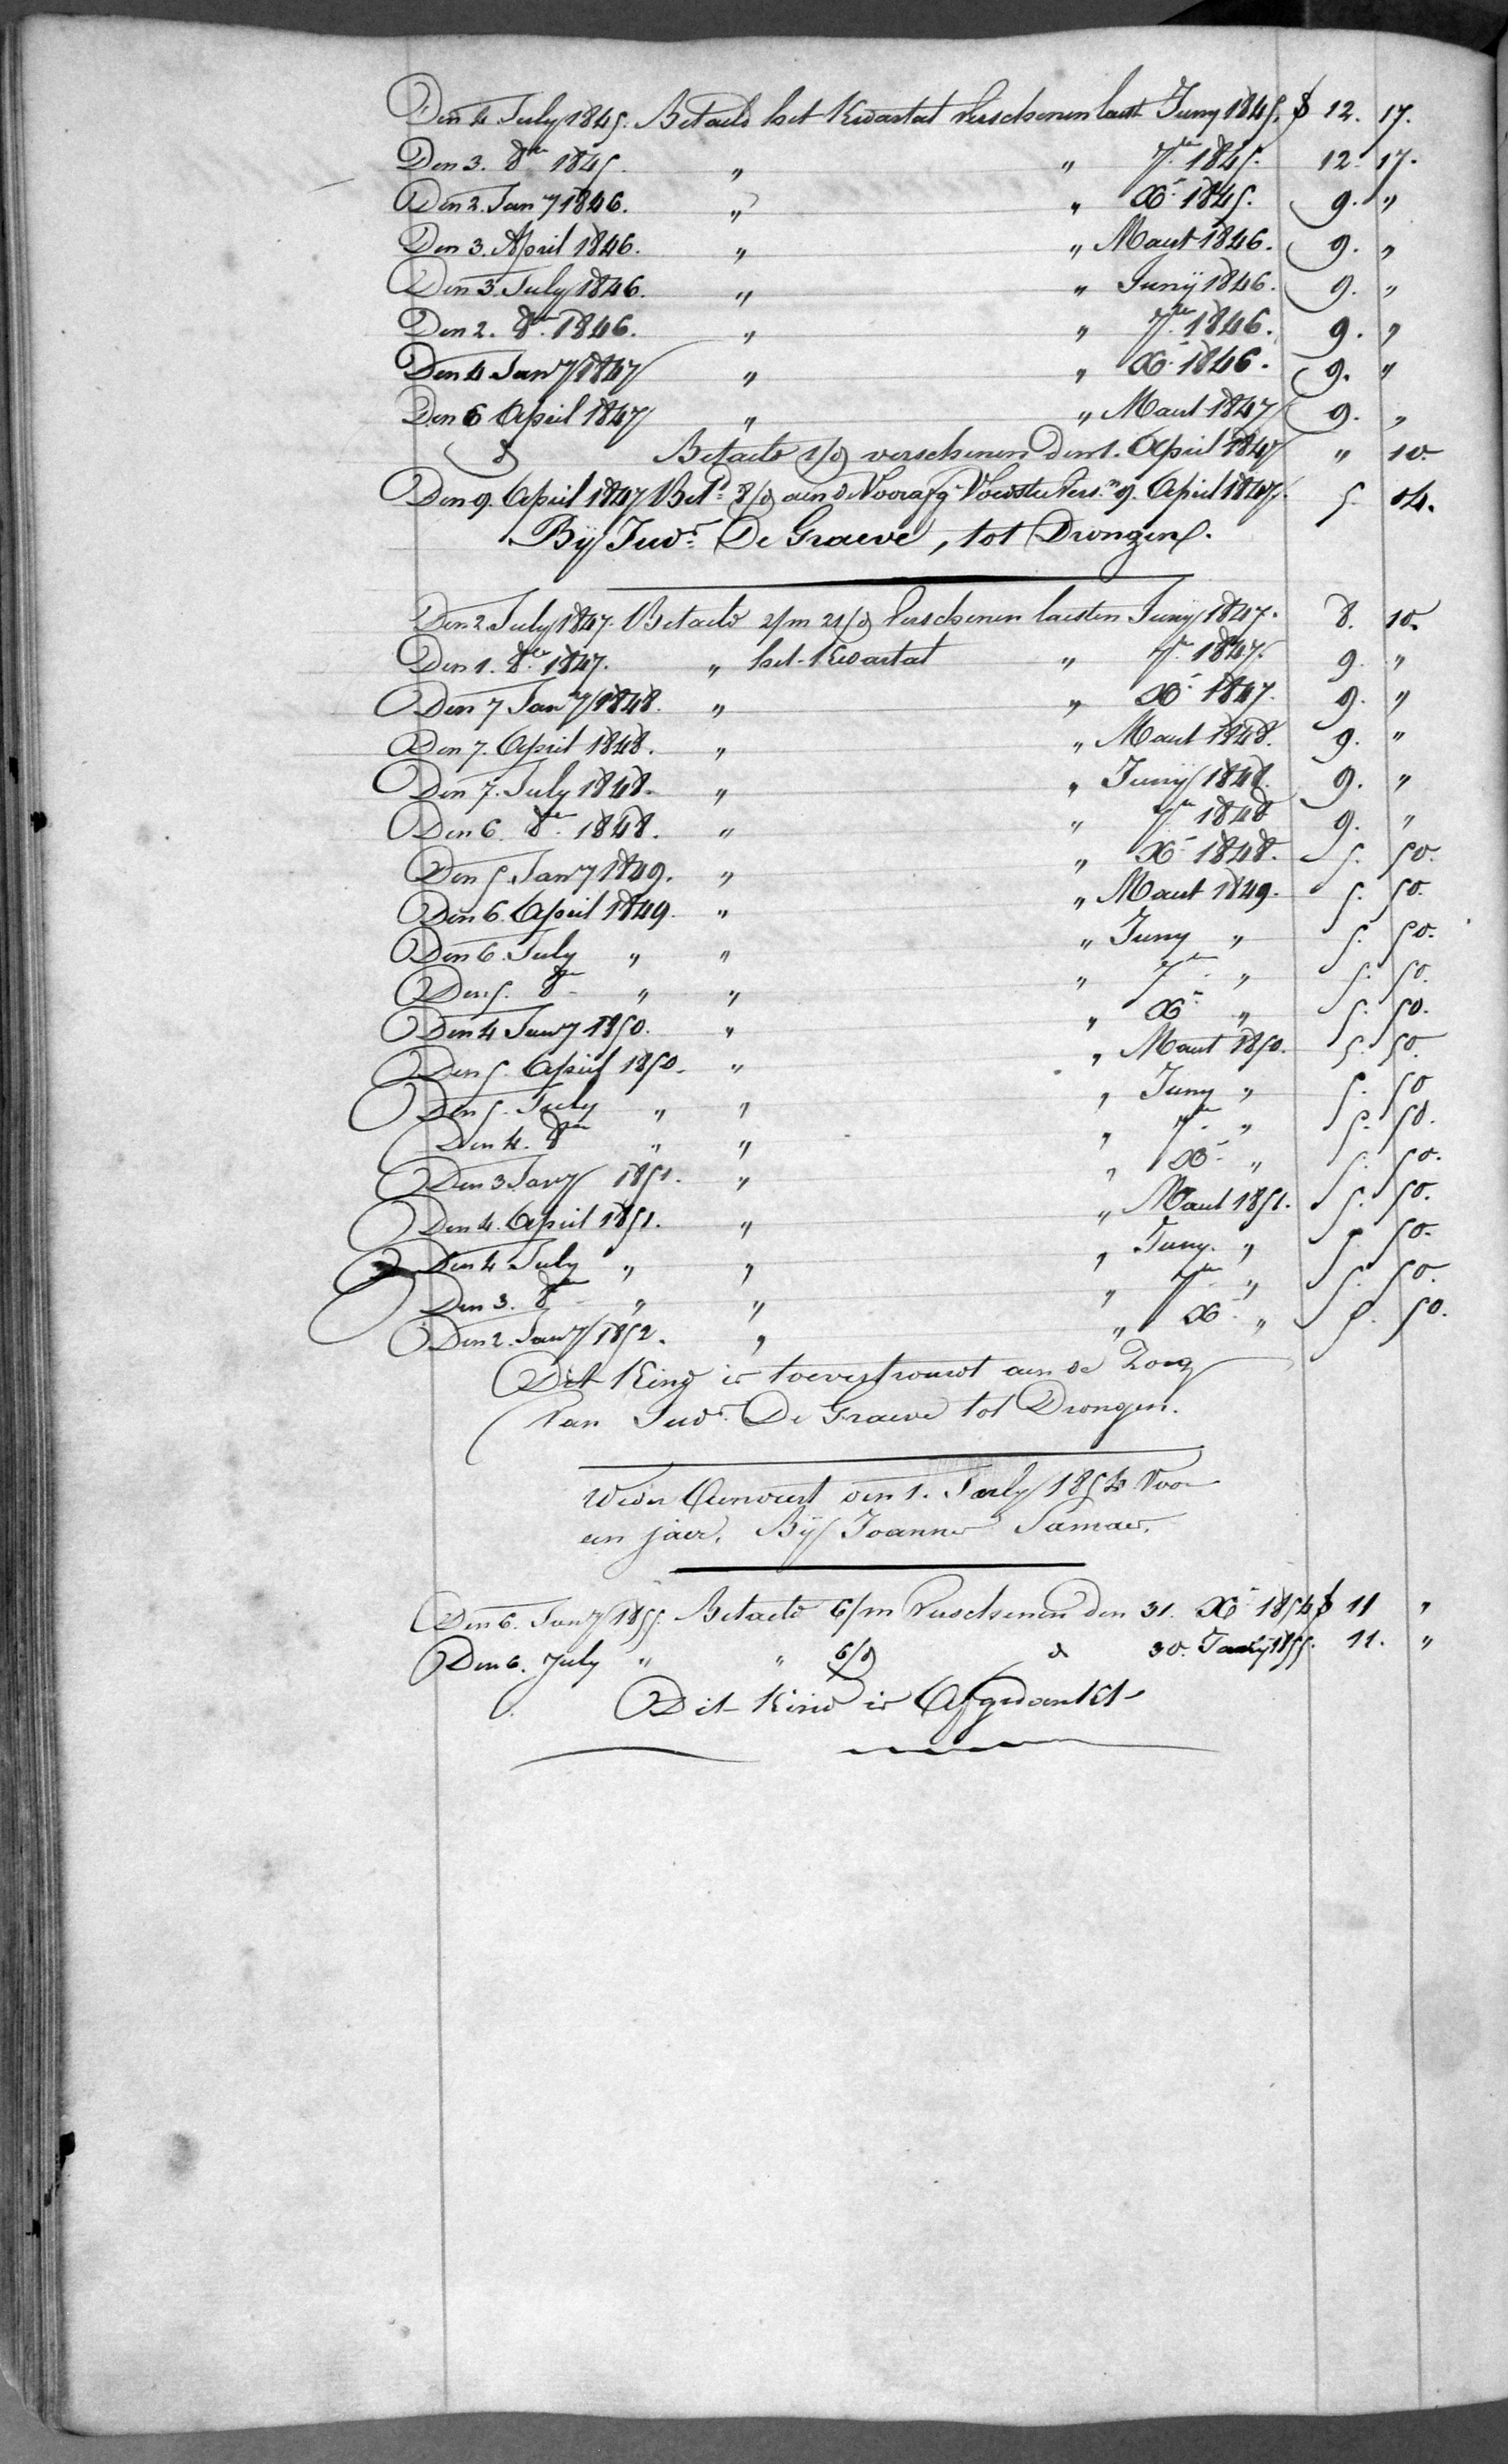 Den 4 July 1845. Betaeld het Kwartal verschenen laest Juny 1845. ₣ 12. 17.
Den 3. 8bre 1845. " " 7bre 1845. 12. 17.
Den 2. Jany 1846. " " Xbre 1845. 9. "
Den 3. April 1846. " " Maert 1846. 9. "
Den 3. July 1846. " " Junij 1846. 9. "
Den 2. 8bre 1846. " " 7bre 1846. 9. "
Den 4 Jany 1847 " " Xbre 1846. 9. "
Den 6 April 1847 " " Maert 1847 9. "
d Betaeld 1/d verschenen den 1. April 1847 " 10.
Den 9. April 1847 Bet.d 8/d aen de Voorafg Voedster Vers.n 9. April 1847. 5. 04.
Bij Judc De Graeve, tot Drongen.
Den 2 July 1847. Betaeld 2/m 21/d Verschenen laesten Juny 1847. 8. 10.
Den 1. 8bre 1847. " het Kwartal " 7bre 1847. 9. "
Den 7 Jany 1848. " " Xbre 1847. 9. "
Den 7. April 1848. " " Maert 1848. 9. "
Den 7. July 1848. " " Junij 1848. 9. "
Den 6. 8bre 1848. " " 7bre 1848 9. "
Den 5. Jany 1849. " " Xbre 1848. 5. 50.
Den 6. April 1849. " " Maert 1849. 5. 50.
Den 6. July " " " Juny " 5. 50.
Den 5. 8bre " " " 7bre " 5. 50.
Den 4 Jany 1850. " " Xbre " 5. 50.
Den 5. April 1850. " " Maert 1850. 5. 50.
Den 5. July " " " Juny " 5. 50
Den 4. 8bre " " " 7bre " 5. 50.
Den 3 Jany 1851. " " Xbre " 5. 50.
Den 4. April 1851. " " Maert 1851. 5. 50.
Den 4 July " " " Juny. " 5. 50.
Den 3. 8bre " " " 7bre " 5. 50.
Den 2. Jany 1852. " " Xbre " 5. 50.
Dit Kind is toevertrouwt aen de Zorg
Van Judc De Graeve tot Drongen.
Weder Aenveert den 1. July 1854 Voor
een jaer. Bij Joannes
Den 6. Jany 1855. Betaeld 6/m Verschenen den 31. Xbre 1854 ₣ 11 "
Den 6. July " " 6/d d 30. 1855. 11. "
Dit Kind is Afgedankt